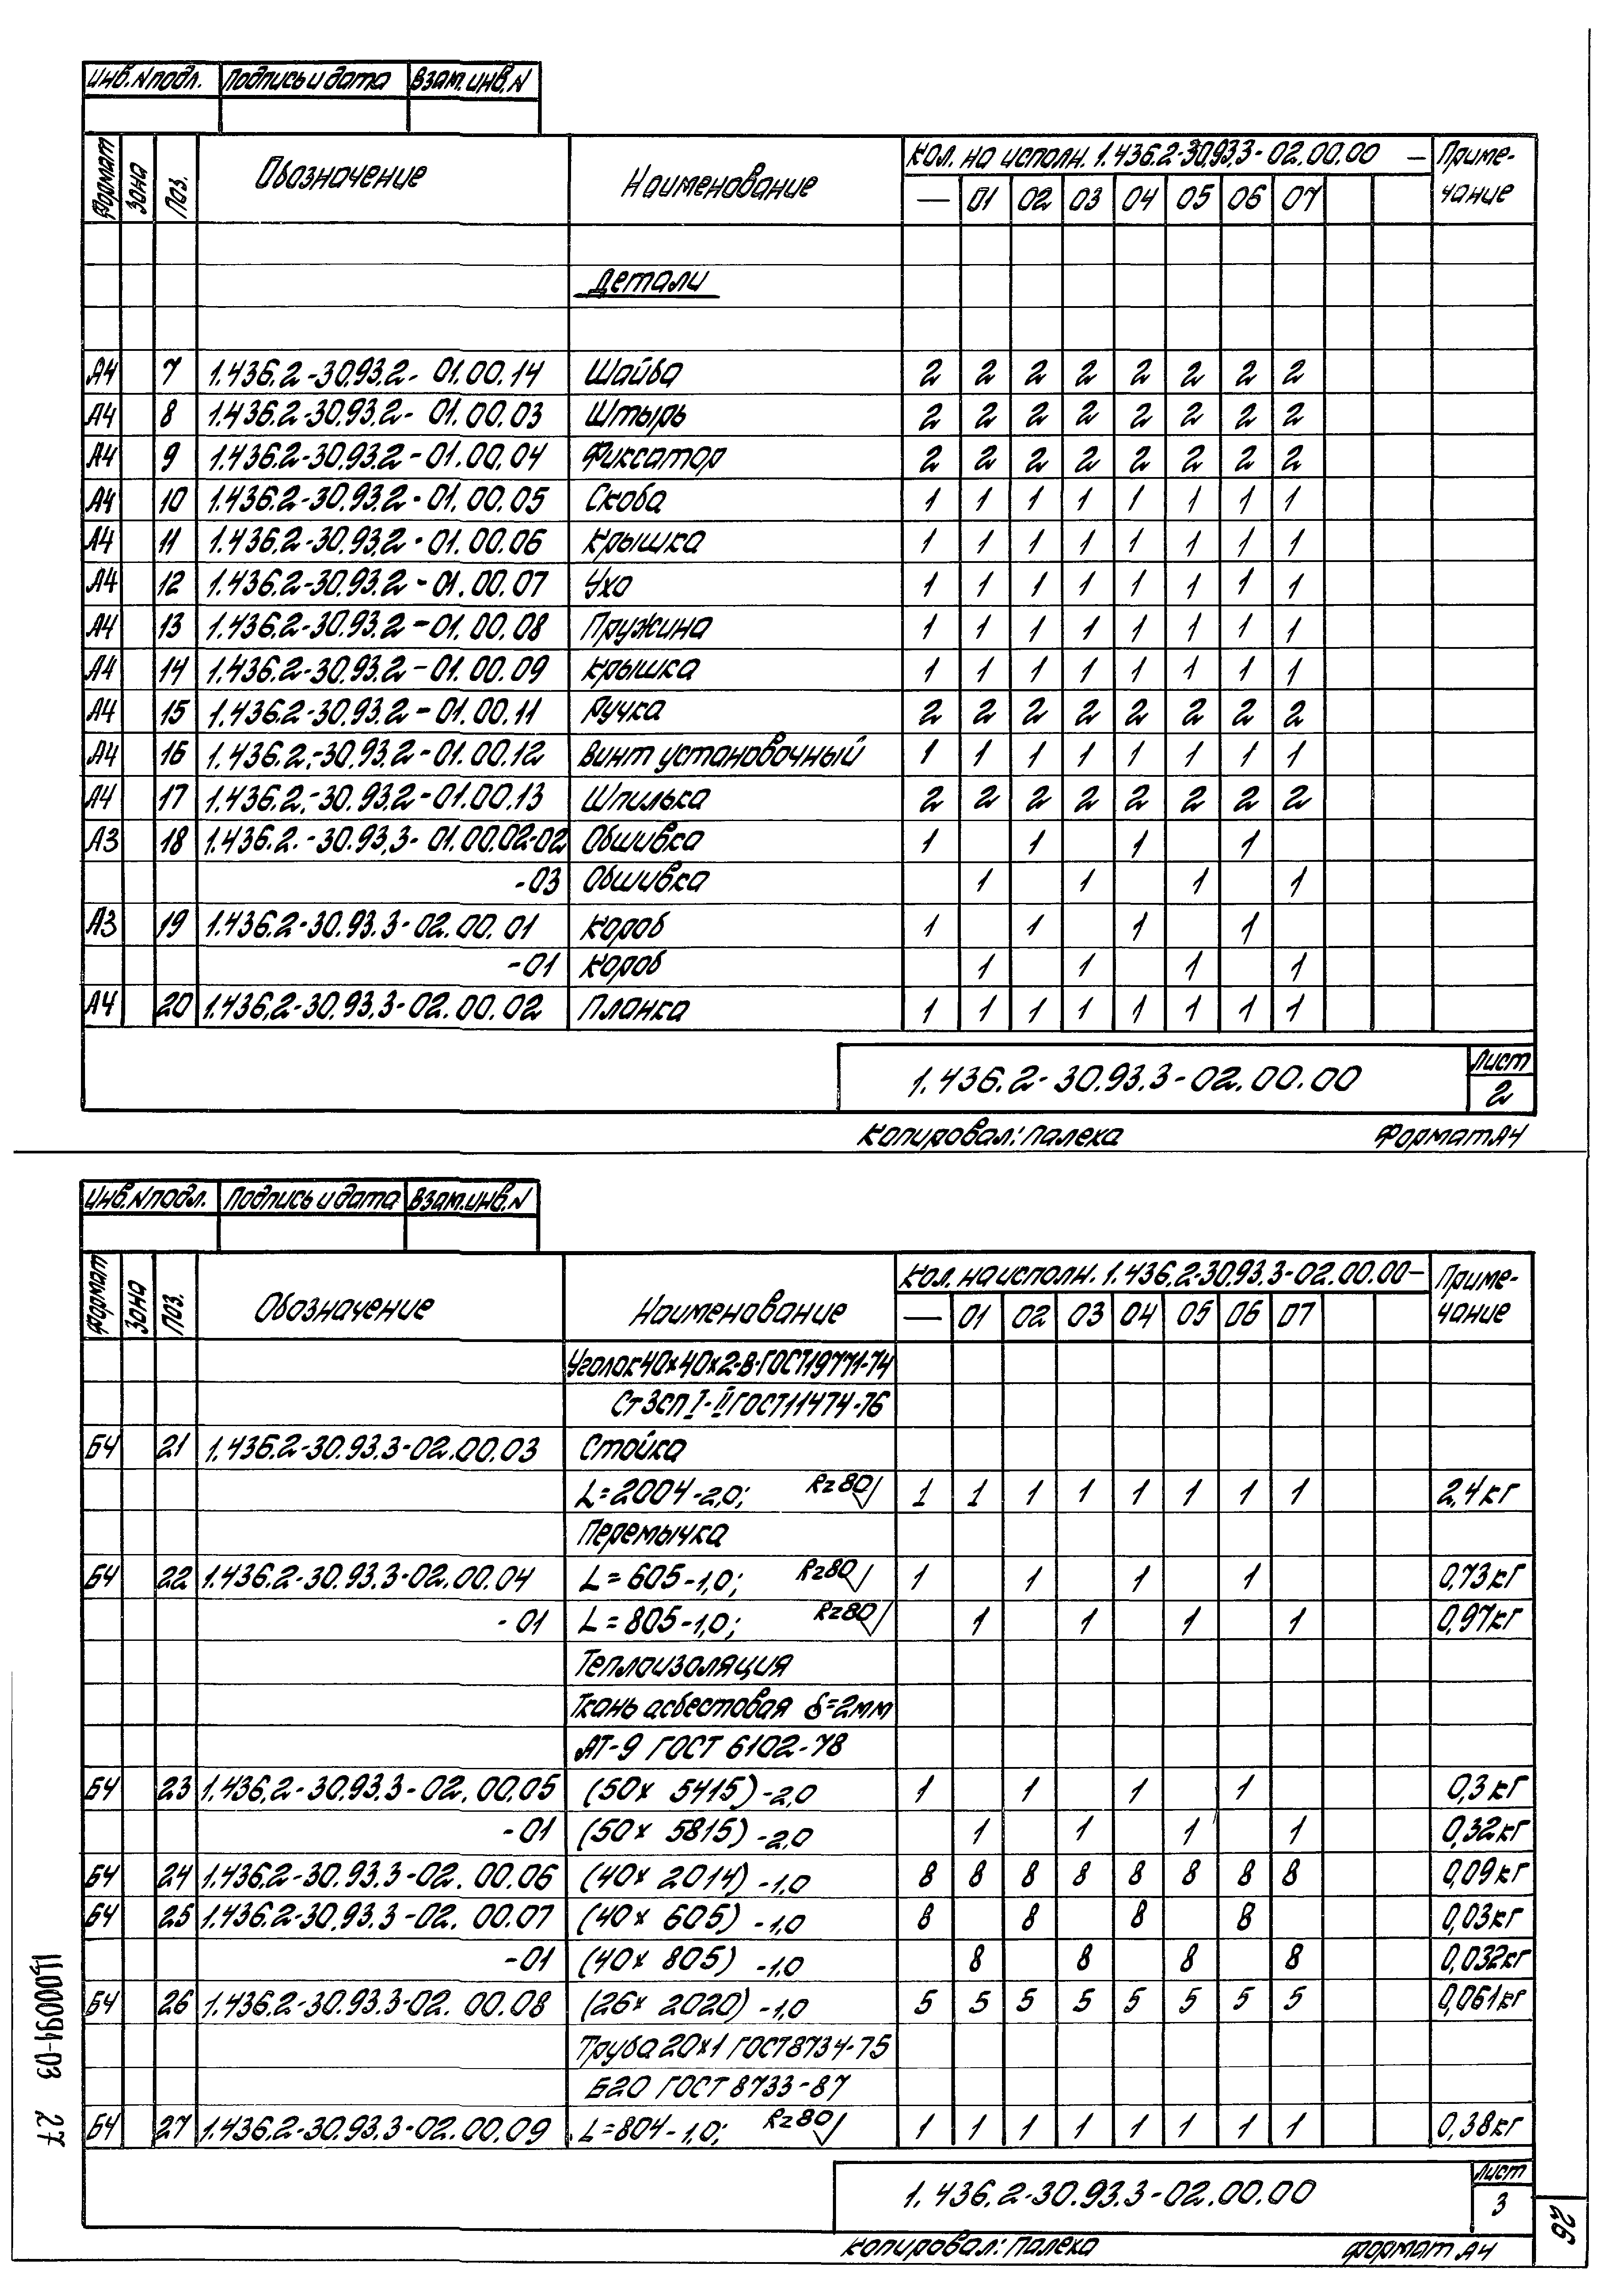 Инв.Nподл. Подпись и дата Взам.инв.N
Формат Зона Поз. Обозначение Наименование Кол. на исполн. 1.436.2-30.93.3-02.00.00 — Приме-
— 01 02 03 04 05 06 07 чание
Детали
А4 7 1.436.2-30.93.2-01.00.14 Шайба 2 2 2 2 2 2 2 2
А4 8 1.436.2-30.93.2-01.00.03 Штырь 2 2 2 2 2 2 2 2
А4 9 1.436.2-30.93.2-01.00.04 Фиксатор 2 2 2 2 2 2 2 2
А4 10 1.436.2-30.93.2-01.00.05 Скоба 1 1 1 1 1 1 1 1
А4 11 1.436.2-30.93.2-01.00.06 Крышка 1 1 1 1 1 1 1 1
А4 12 1.436.2-30.93.2-01.00.07 Ухо 1 1 1 1 1 1 1 1
А4 13 1.436.2-30.93.2-01.00.08 Пружина 1 1 1 1 1 1 1 1
А4 14 1.436.2-30.93.2-01.00.09 Крышка 1 1 1 1 1 1 1 1
А4 15 1.436.2-30.93.2-01.00.11 Ручка 2 2 2 2 2 2 2 2
А4 16 1.436.2.-30.93.2-01.00.12 Винт установочный 1 1 1 1 1 1 1 1
А4 17 1.436.2.-30.93.2-01.00.13 Шпилька 2 2 2 2 2 2 2 2
А3 18 1.436.2.-30.93.3-01.00.02-02 Обшивка 1 1 1 1
-03 Обшивка 1 1 1 1
А3 19 1.436.2-30.93.3-02.00.01 Короб 1 1 1 1
-01 Короб 1 1 1 1
А4 20 1.436.2-30.93.3-02.00.02 Планка 1 1 1 1 1 1 1 1
1.436.2-30.93.3-02.00.00 Лист
2
Копировал: Палеха Формат А4
Инв.Nподл. Подпись и дата Взам.инв.N
Формат Зона Поз. Обозначение Наименование Кол. на исполн. 1.436.2-30.93.3-02.00.00— Приме-
— 01 02 03 04 05 06 07 чание
Уголок 40х40х2-В-ГОСТ19771-74
Ст3сп I-II ГОСТ11474-76
БЧ 21 1.436.2-30.93.3-02.00.03 Стойка
L=2004-2,0; Rz80 1 1 1 1 1 1 1 1 2,4кг
Перемычка
БЧ 22 1.436.2-30.93.3-02.00.04 L=605-1,0; Rz80 1 1 1 1 0,73кг
-01 L=805-1,0; Rz80 1 1 1 1 0,97кг
Теплоизоляция
Ткань асбестовая δ=2мм
АТ-9 ГОСТ 6102-78
БЧ 23 1.436.2-30.93.3-02.00.05 (50х 5415)-2,0 1 1 1 1 0,3кг
-01 (50х 5815)-2,0 1 1 1 1 0,32кг
БЧ 24 1.436.2-30.93.3-02.00.06 (40х 2014)-1,0 8 8 8 8 8 8 8 8 0,09кг
БЧ 25 1.436.2-30.93.3-02.00.07 (40х 605)-1,0 8 8 8 8 0,03кг
-01 (40х 805)-1,0 8 8 8 8 0,032кг
БЧ 26 1.436.2-30.93.3-02.00.08 (26х 2020)-1,0 5 5 5 5 5 5 5 5 0,061кг
Труба 20х1 ГОСТ8734-75
Б20 ГОСТ 8733-87
БЧ 27 1.436.2-30.93.3-02.00.09 L=804-1,0; Rz80 1 1 1 1 1 1 1 1 0,38кг
1.436.2-30.93.3-02.00.00 Лист
3
Копировал: Палеха Формат А4
Ц00091-03 27
26